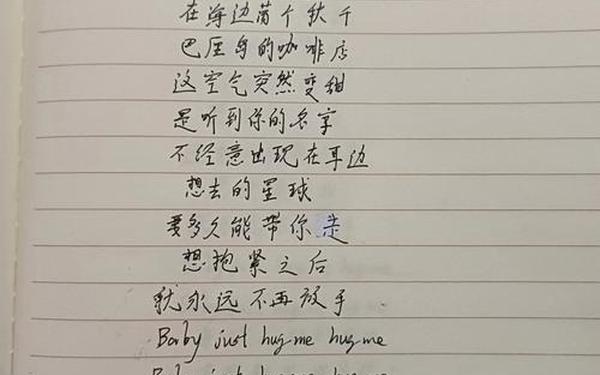 在海边荡个秋千
巴厘岛的咖啡店
这空气突然变甜
是听到你的名字
不经意出现在耳边
想去的星球
要多久能带你走
想抱紧之后
就永远不再放手
Baby just hug me hug me
Baby just hug me hug me